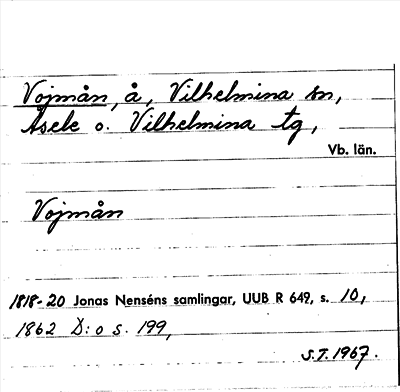 Vojmån, å, Vilhelmina sn,
Åsele o. Vilhelmina tg,
Vb. län.
Vojmån
1818-20 Jonas Nenséns samlingar, UUB R 649, s. 10,
1862 D:o s. 199,
S.T. 1967.